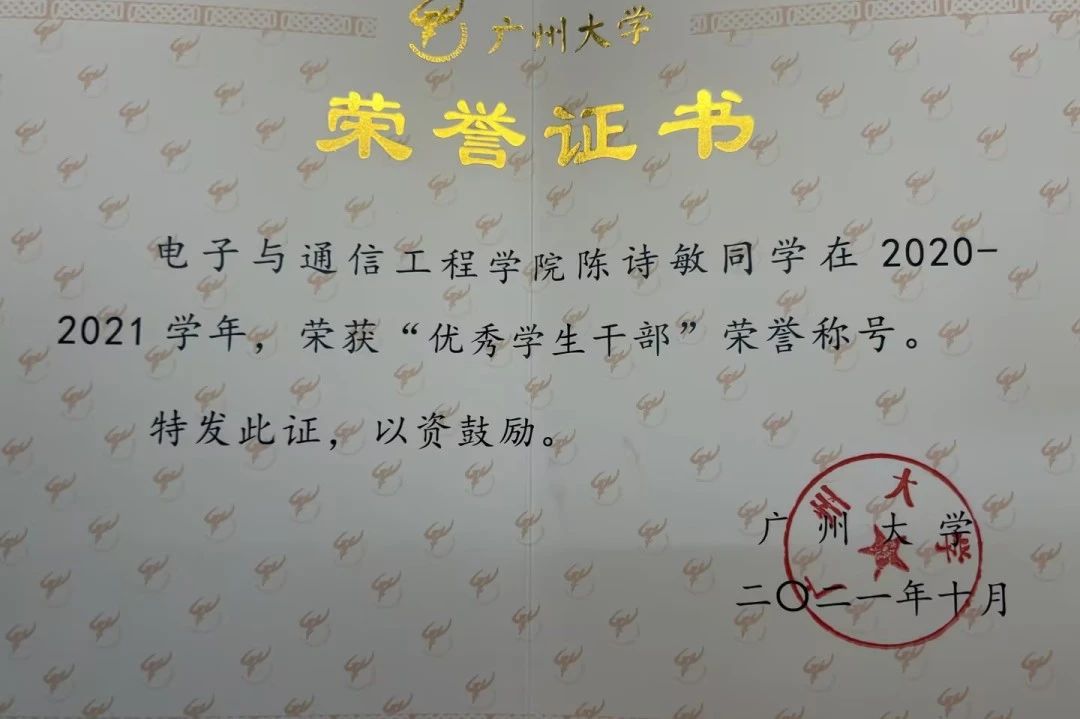 广州大学
荣誉证书
电子与通信工程学院陈诗敏同学在 2020-
2021 学年，荣获“优秀学生干部”荣誉称号。
特发此证，以资鼓励。
广州大学
二〇二一年十月
广州大学